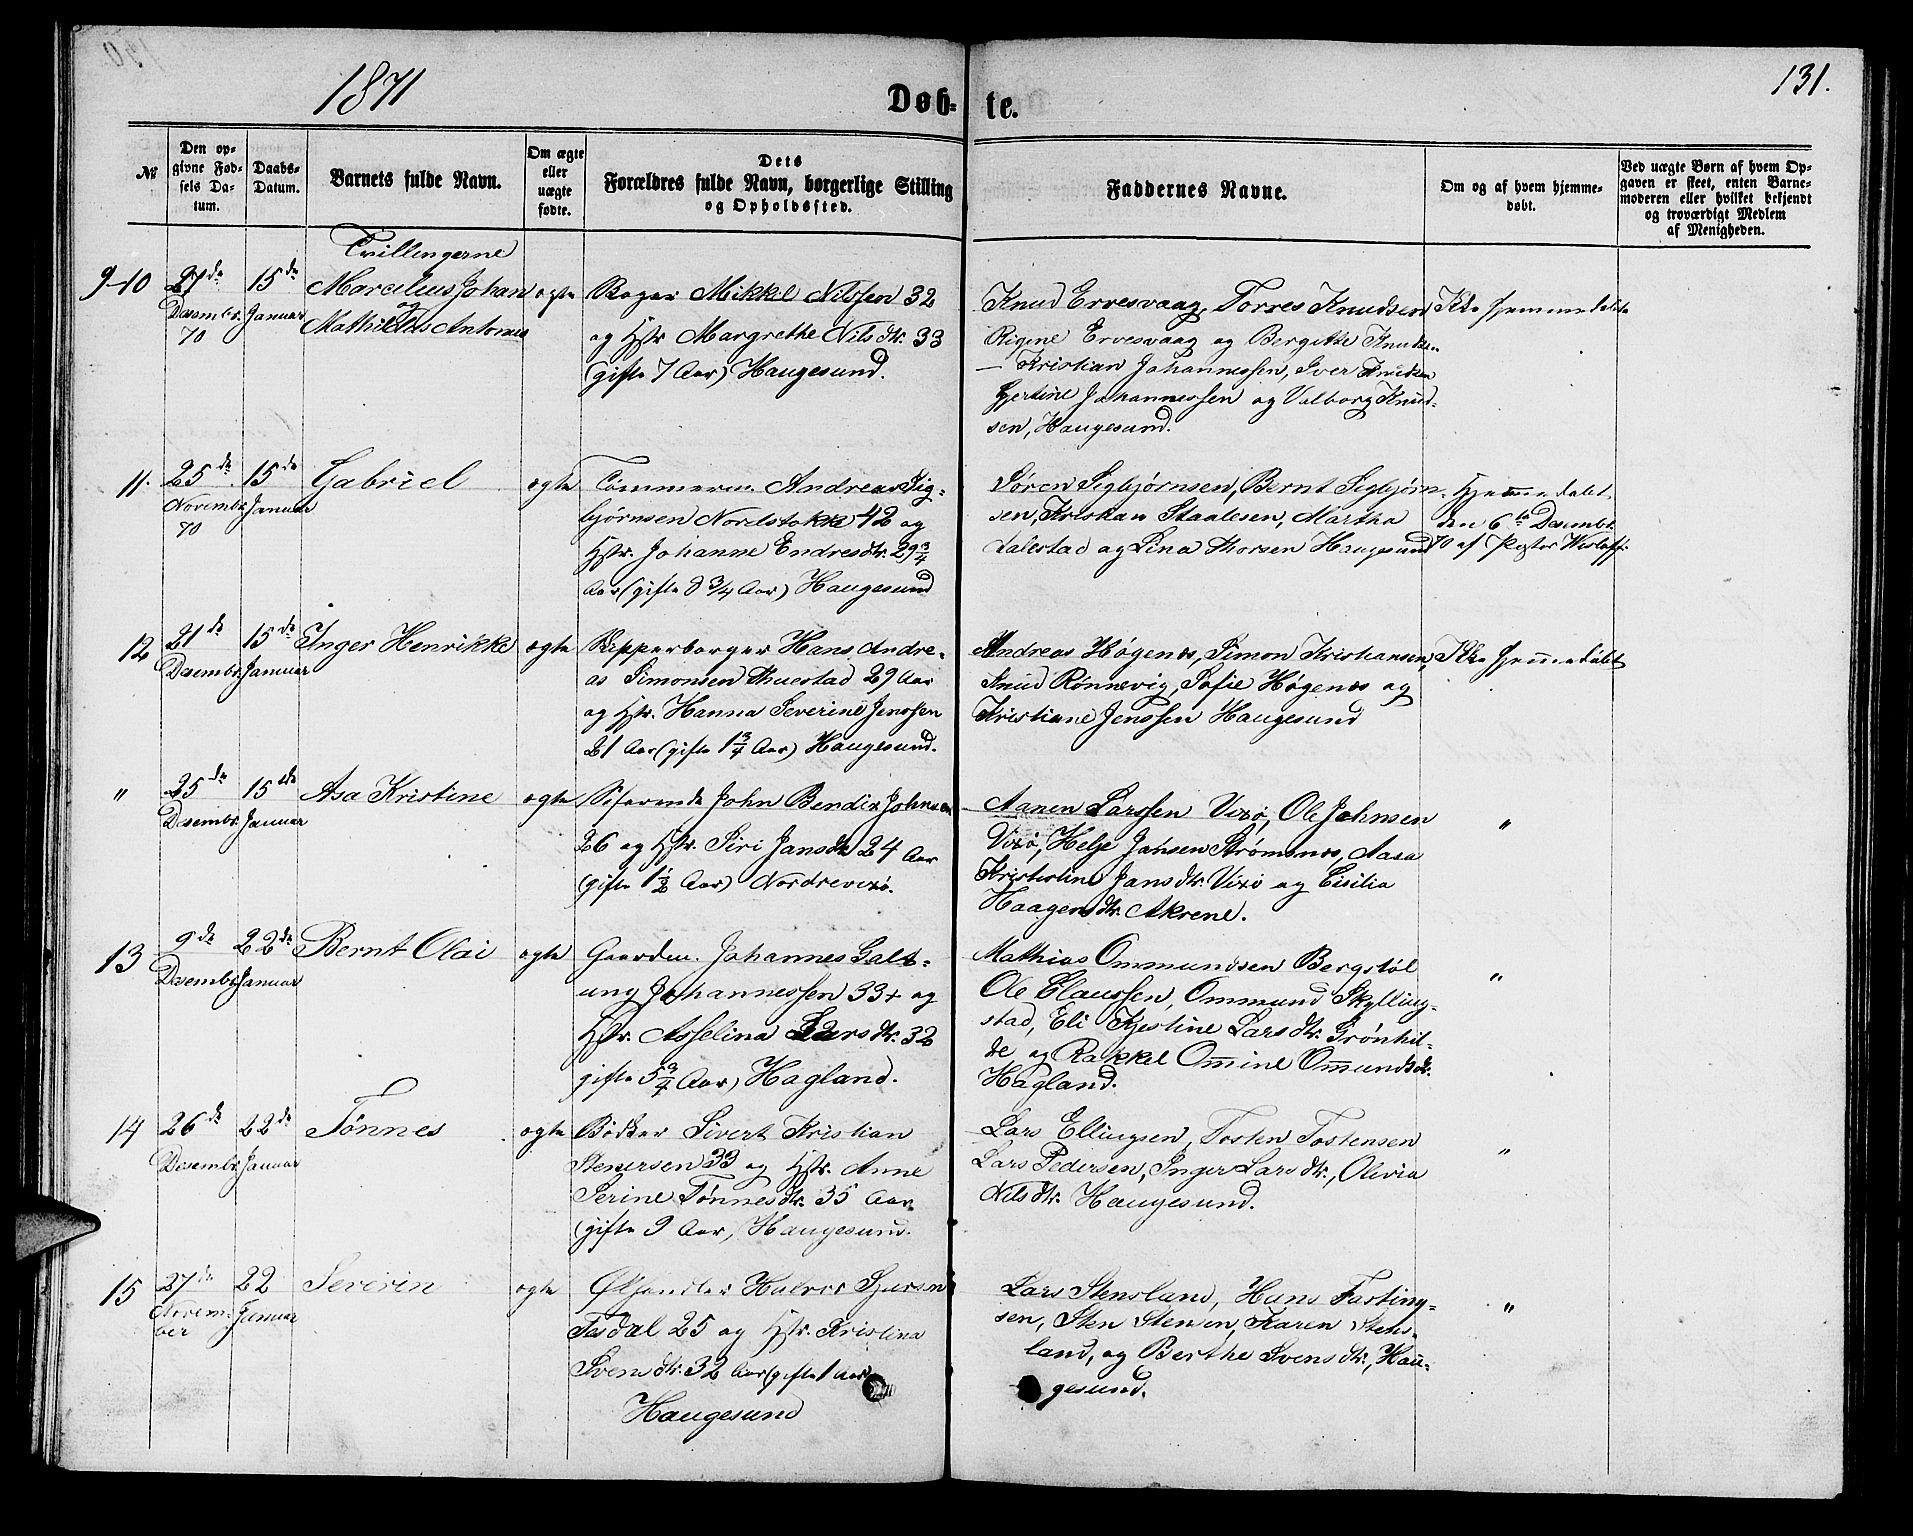 1871
Døb-
te.
131.
№
Den op-
givne Fød-
sels Da-
tum.
Daabs-
Datum.
Barnets fulde Navn.
Om ægte
eller
uægte
fødte.
Dets
Forældres fulde Navn, borgerlige Stilling
og Opholdssted.
Faddernes Navne.
Om og af hvem hjemme-
døbt.
Ved uægte Børn af hvem Op-
gaven er skeet, enten Barne-
moderen eller hvilket bekjendt
og troværdigt Medlem
af Menigheden.
9-10
27de
Desembr.
70
15de
Januar
Tvillingerne
Marcelius Johan
og
Mathilde Antonie
ægte
Bager Mikkel Nilssen 32
og Hstr Margrethe Nilsdtr. 33
(gifte 7 Aar) Haugesund.
Knud Ervesvaag, Torres Knudsen
Rigene Ervesvaag og Bergitte Knuds.
— Kristian Johannessen, Iver Knudsen
Gjertine Johannessen og Valborg Knud-
sen, Haugesund.
Ikke hjemmedøbte
11.
25de
Novembr.
70
15de
Januar
Gabriel
ægte
Tømmerm. Andreas Sig-
bjørnsen Nordstokke 42 og
Hstr. Johanne Endresdtr. 29 3/4
Aar (gifte 8 3/4 Aar) Haugesund
Søren Sigbjørnsen, Bernt Sigbjørn-
sen, Kristian Staalesen, Martha
dalestad og Lina Thorsen Haugesund
Hjemmedøbt
den 6te Desembr.
70 af Pastor
12
21de
Desembr.
15de
Januar
Inger Henrikke
ægte
Skipperborger Hans Andre-
as Simonsen Thuestad 29 Aar
og Hstr. Hanna Severine Jenssen
21 Aar (gifte 1 3/4 Aar) Haugesund.
Andreas Høgenæs, Simon Kristiansen,
Knud Rønnevig, Sofie Høgenæs og
Kristiane Jenssen Haugesund
Ikke hjemmedøbt
"
25de
Desembr.
15de
Januar
Asa Kristine
ægte
Søfarende John Bendix Johnsen
26 og Hstr. Siri Jansdtr 24 Aar
(gifte 1 1/2 Aar) Nordrevixø.
Aanen Larssen Vixø, Ole Johnsen
Vixø, Helje Jansen Strømsnæs, Aasa
Jansdtr. Vixø og Cisilia
Haagensdtr. Akrene.
"
13
9de
Desembr.
22de
Januar
Bernt Olai
ægte
Gaardm. Johannes Galt-
ung Johannessen 33+ og
Hstr. Asselina Larsdtr. 32
gifte 5 3/4 Aar) Hagland.
Mathias Ommundsen Bergstøl
Ole Claussen, Ommund Skylling-
stad, Eli Kjestine Larsdtr. Grønhil-
de og Rakkel Omine Omundsdtr.
Hagland.
"
14
26de
Desembr.
22de
Januar
Tønnes
ægte
Bødker Sivert Kristian
Stenersen 33 og Hstr. Anne
Serine Tønnesdtr. 35 Aar
(gifte 9 Aar) Haugesund.
Lars Ellingsen, Tosten Tostensen
Lars Pedersen, Inger Larsdtr., Olivia
Nilsdtr. Haugesund.
"
15
27de
Novem-
ber
22
Januar
Severin
ægte
Ølhandler Halvor Sjursen
Tesdal 25 og Hstr. Kristina
Svensdtr. 32 Aar (gifte 1 Aar)
Haugesund
Lars Stensland, Hans Fasting-
sen, Sten Stensen, Karen Stens-
land, og Berthe Svensdtr., Hau-
gesund.
"